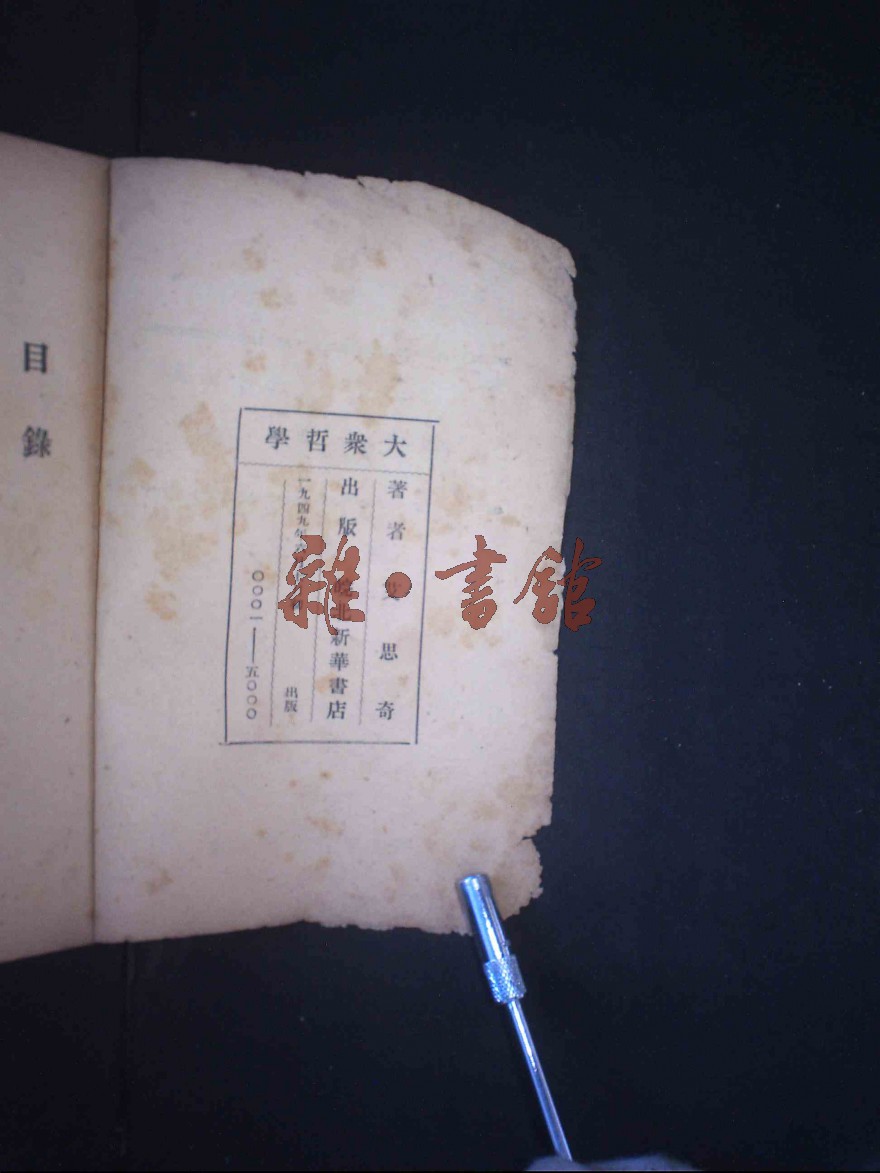 大衆哲學
著者 艾思奇
出版 皖北新華書店
一九四九年 出版
〇〇〇一——五〇〇〇
目錄
雜·書館